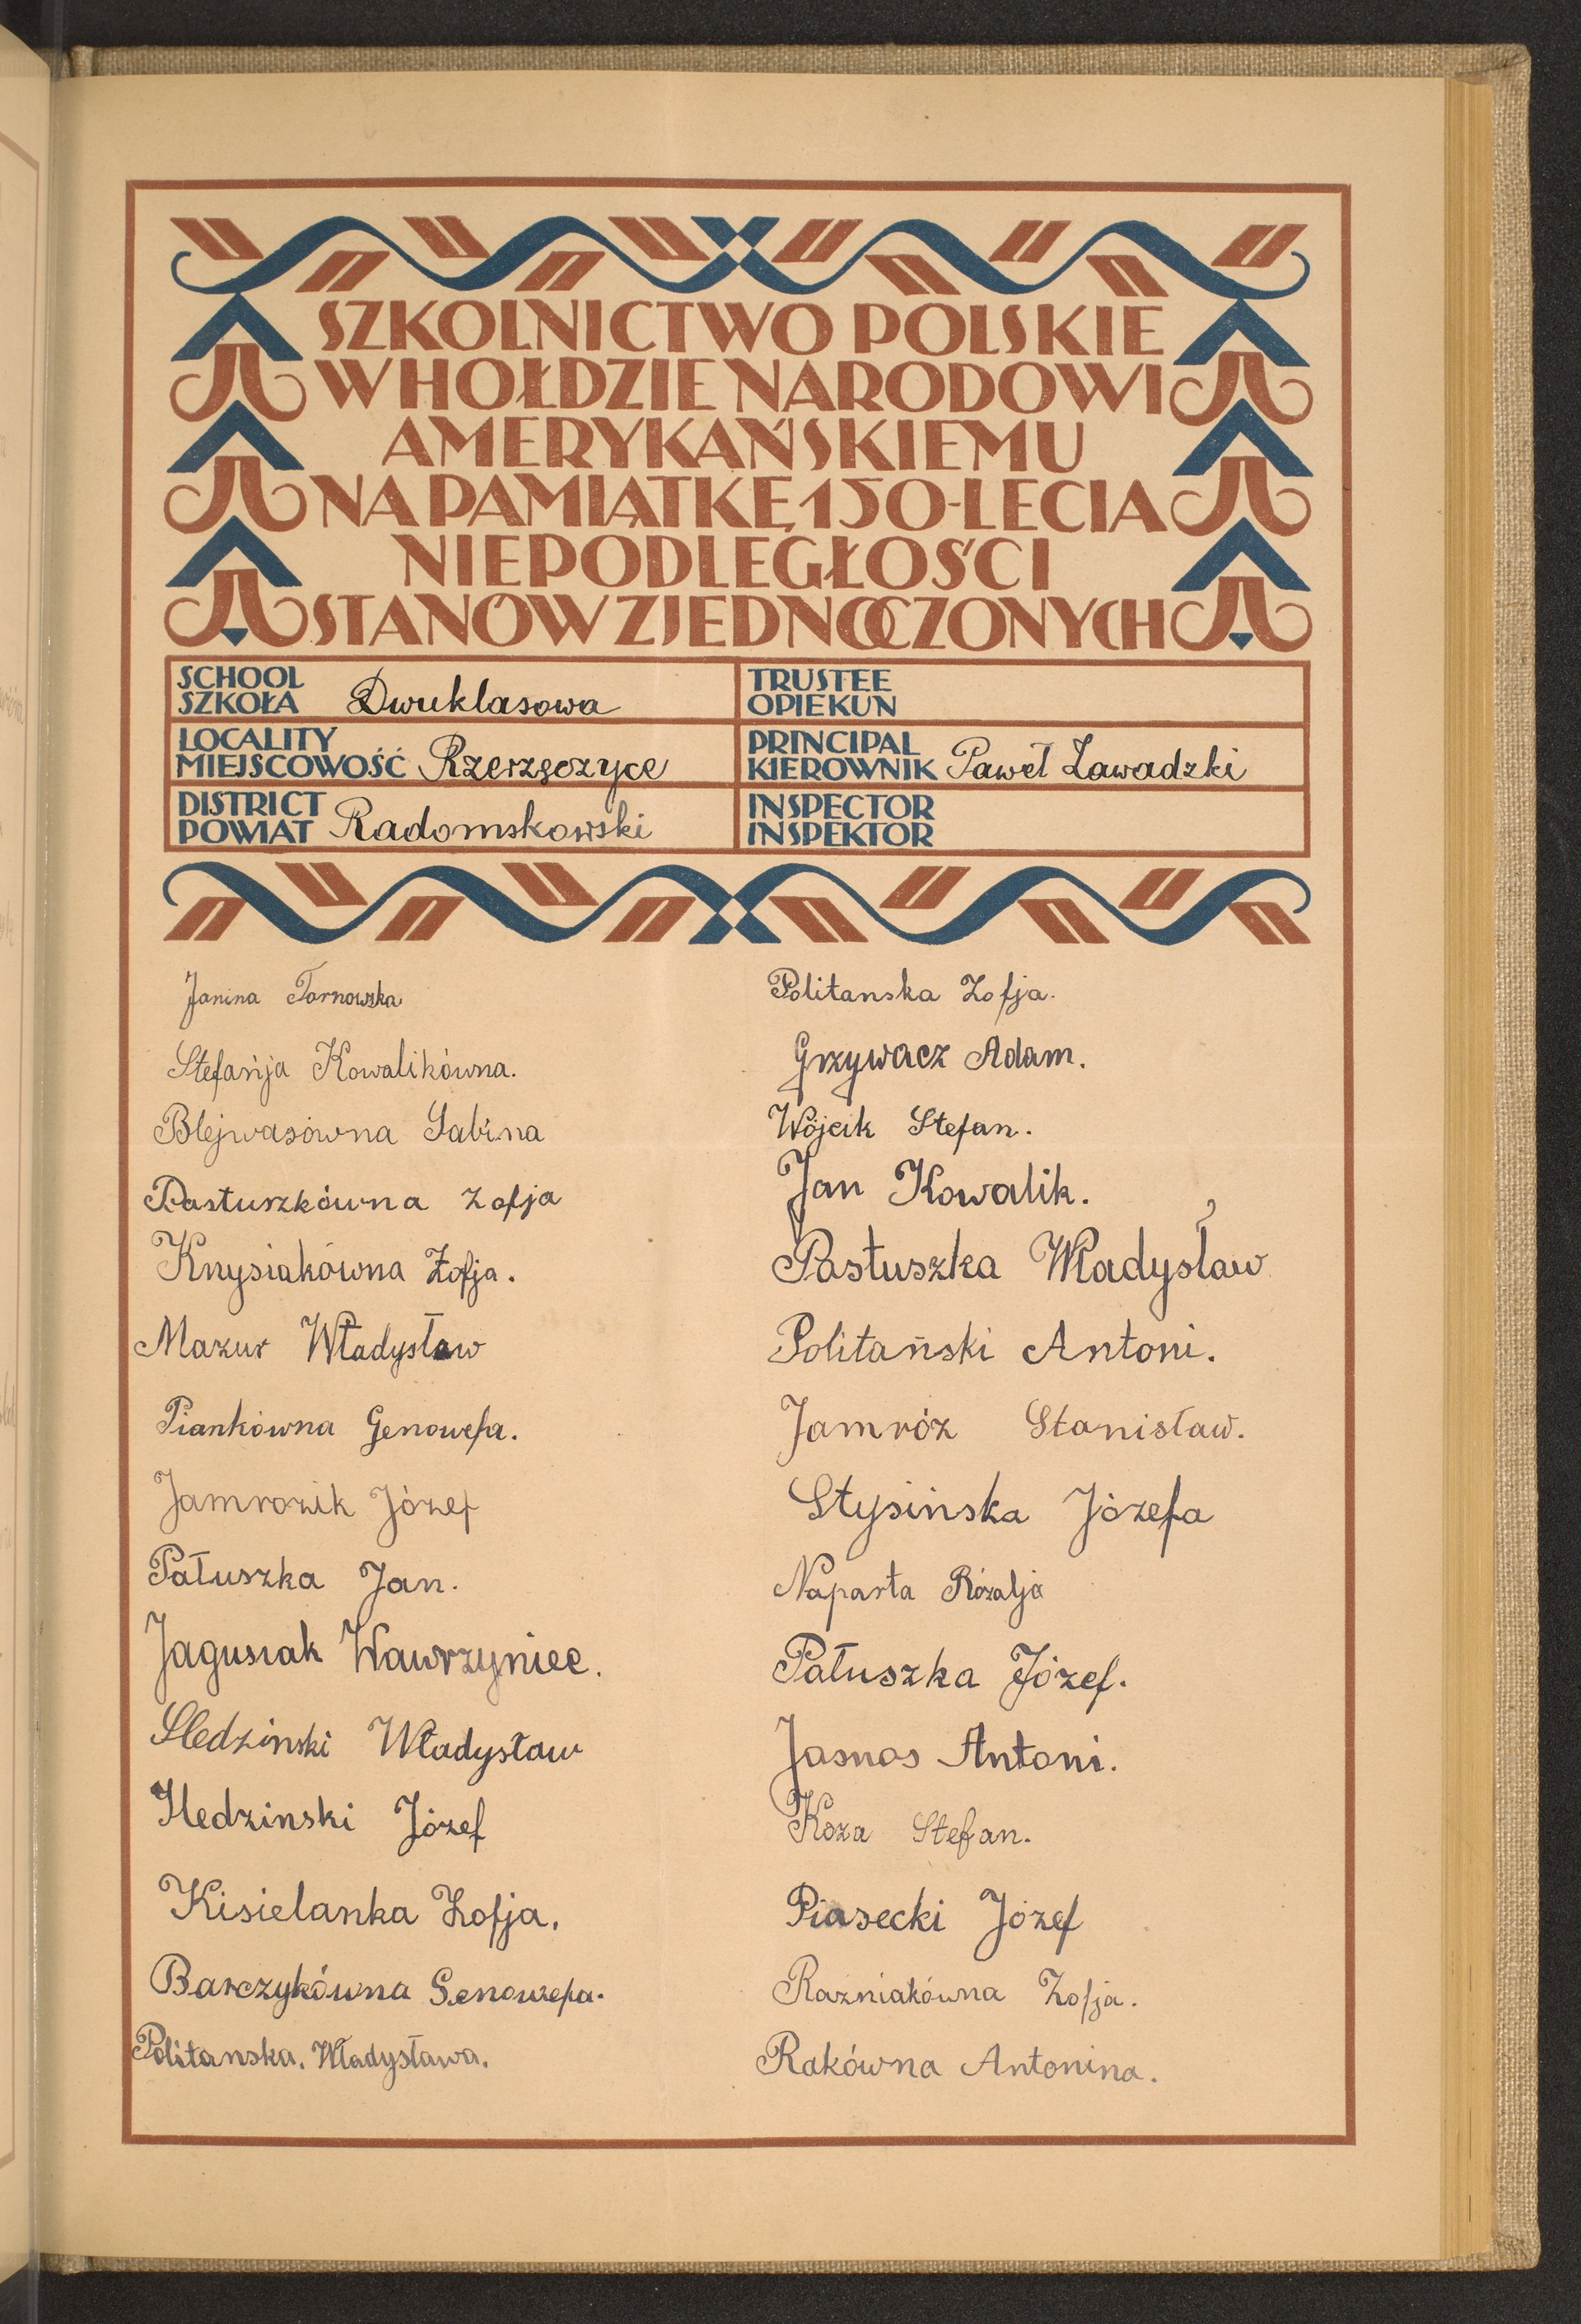 SZKOLNICTWO POLSKIE
W HOŁDZIE NARODOWI
AMERYKAŃSKIEMU
NA PAMIĄTKĘ 150-LECIA
NIEPODLEGŁOŚCI
STANÓW ZJEDNOCZONYCH
SCHOOL
SZKOŁA Dwuklasowa
TRUSTEE
OPIEKUN
LOCALITY
MIEJSCOWOŚĆ Rzerzęczyce
PRINCIPAL
KIEROWNIK Paweł Zawadzki
DISTRICT
POWIAT Radomskowski
INSPECTOR
INSPEKTOR
Janina Tarnowska
Stefańja Kowalikówna.
Blejwasówna Sabina
Pastuszkówna Zofja
Knysiakówna Zofja.
Mazur Władysław
Piankówna Genowefa.
Jamrozik Józef
Pałuszka Jan.
Jagusiak Wawrzyniec.
Sledzinski Władysław
Sledzinski Józef
Kisielanka Zofja.
Barczykówna Genowefa.
Politanska. Władysława.
Politanska Zofja.
Grzywacz Adam.
Wójcik Stefan.
Jan Kowalik.
Pastuszka Władysław
Politański Antoni.
Jamróz Stanisław.
Stysińska Józefa
Naparta Rózalja
Pałuszka Józef.
Jasnos Antoni.
Koza Stefan.
Piasecki Józef
Razniakówna Zofja.
Rakówna Antonina.